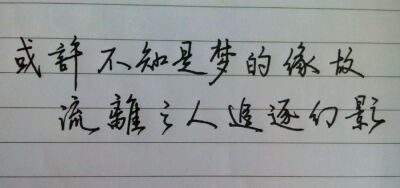 或許不知是梦的缘故
流離之人追逐幻影